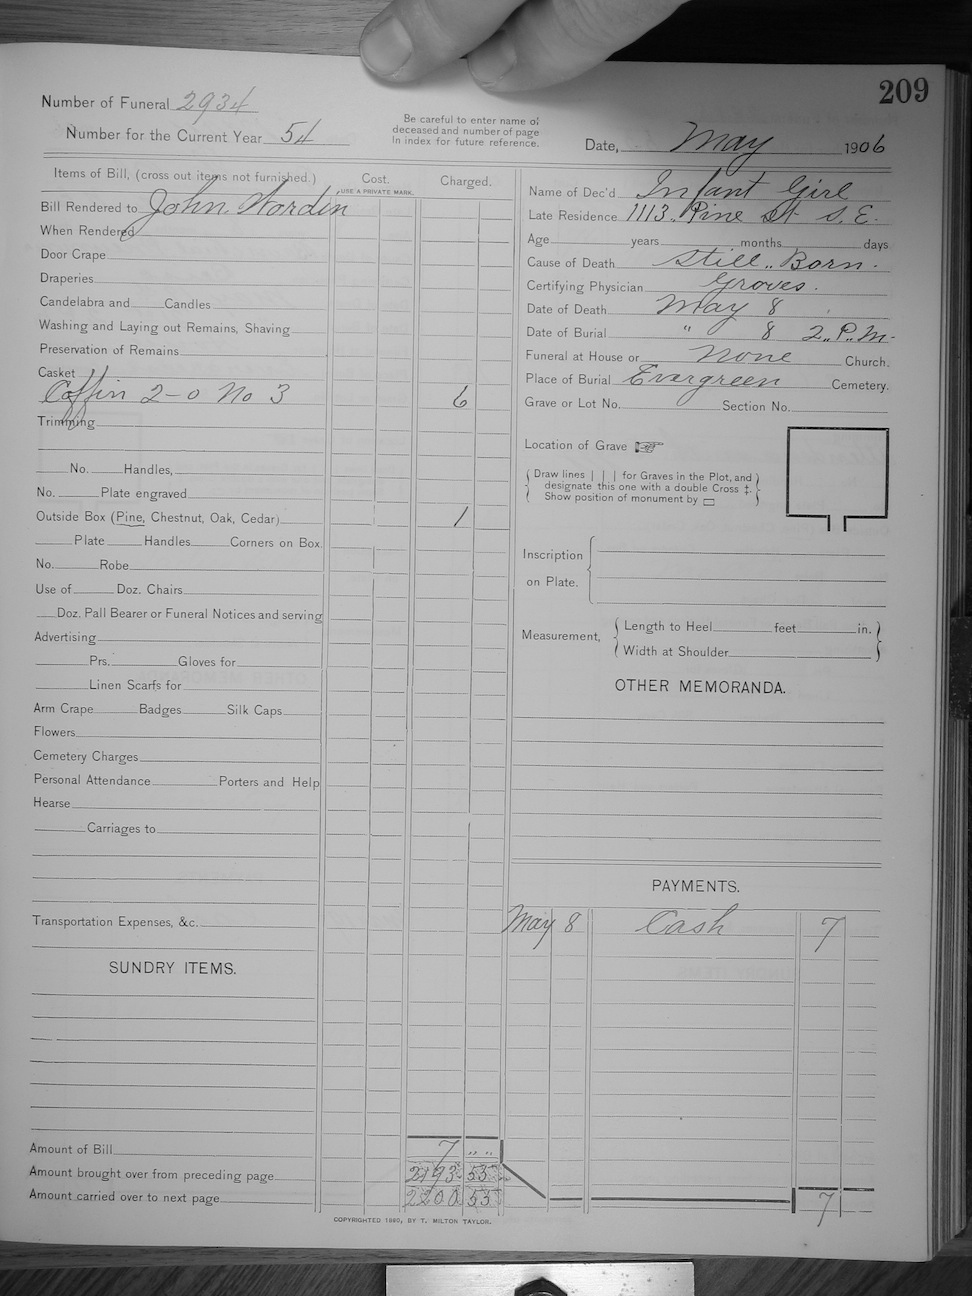 209
Number of Funeral 2934
Number for the Current Year 54
Be careful to enter name of
deceased and number of page
In index for future reference.
Date, May 1906
Items of Bill, (cross out items not furnished.) Cost. Charged.
USE A PRIVATE MARK.
Bill Rendered to John Wordin
When Rendered
Door Crape
Draperies
Candelabra and Candles
Washing and Laying out Remains, Shaving
Preservation of Remains
Casket
Coffin 2-0 No 3 6
Trimming
No. Handles,
No. Plate engraved
Outside Box (Pine, Chestnut, Oak, Cedar) 1
Plate Handles Corners on Box.
No. Robe
Use of Doz. Chairs
Doz. Pall Bearer or Funeral Notices and serving
Advertising
Prs. Gloves for
Linen Scarfs for
Arm Crape Badges Silk Caps
Flowers
Cemetery Charges
Personal Attendance Porters and Help
Hearse
Carriages to
Transportation Expenses, &c.
SUNDRY ITEMS.
Amount of Bill 7 " "
Amount brought over from preceding page 2193 53
Amount carried over to next page 2200 53
Name of Dec'd Infant Girl
Late Residence 1113 Pine St S.E.
Age years months days
Cause of Death Still Born.
Certifying Physician Groves.
Date of Death May 8
Date of Burial " 8 2 P.M.
Funeral at House or None Church.
Place of Burial Evergreen Cemetery.
Grave or Lot No. Section No.
Location of Grave ☞
Draw lines | | | for Graves in the Plot, and
designate this one with a double Cross ‡.
Show position of monument by ▭
Inscription
on Plate.
Measurement,
Length to Heel feet in.
Width at Shoulder
OTHER MEMORANDA.
PAYMENTS.
May 8 Cash 7
7
COPYRIGHTED 1880, BY T. MILTON TAYLOR.